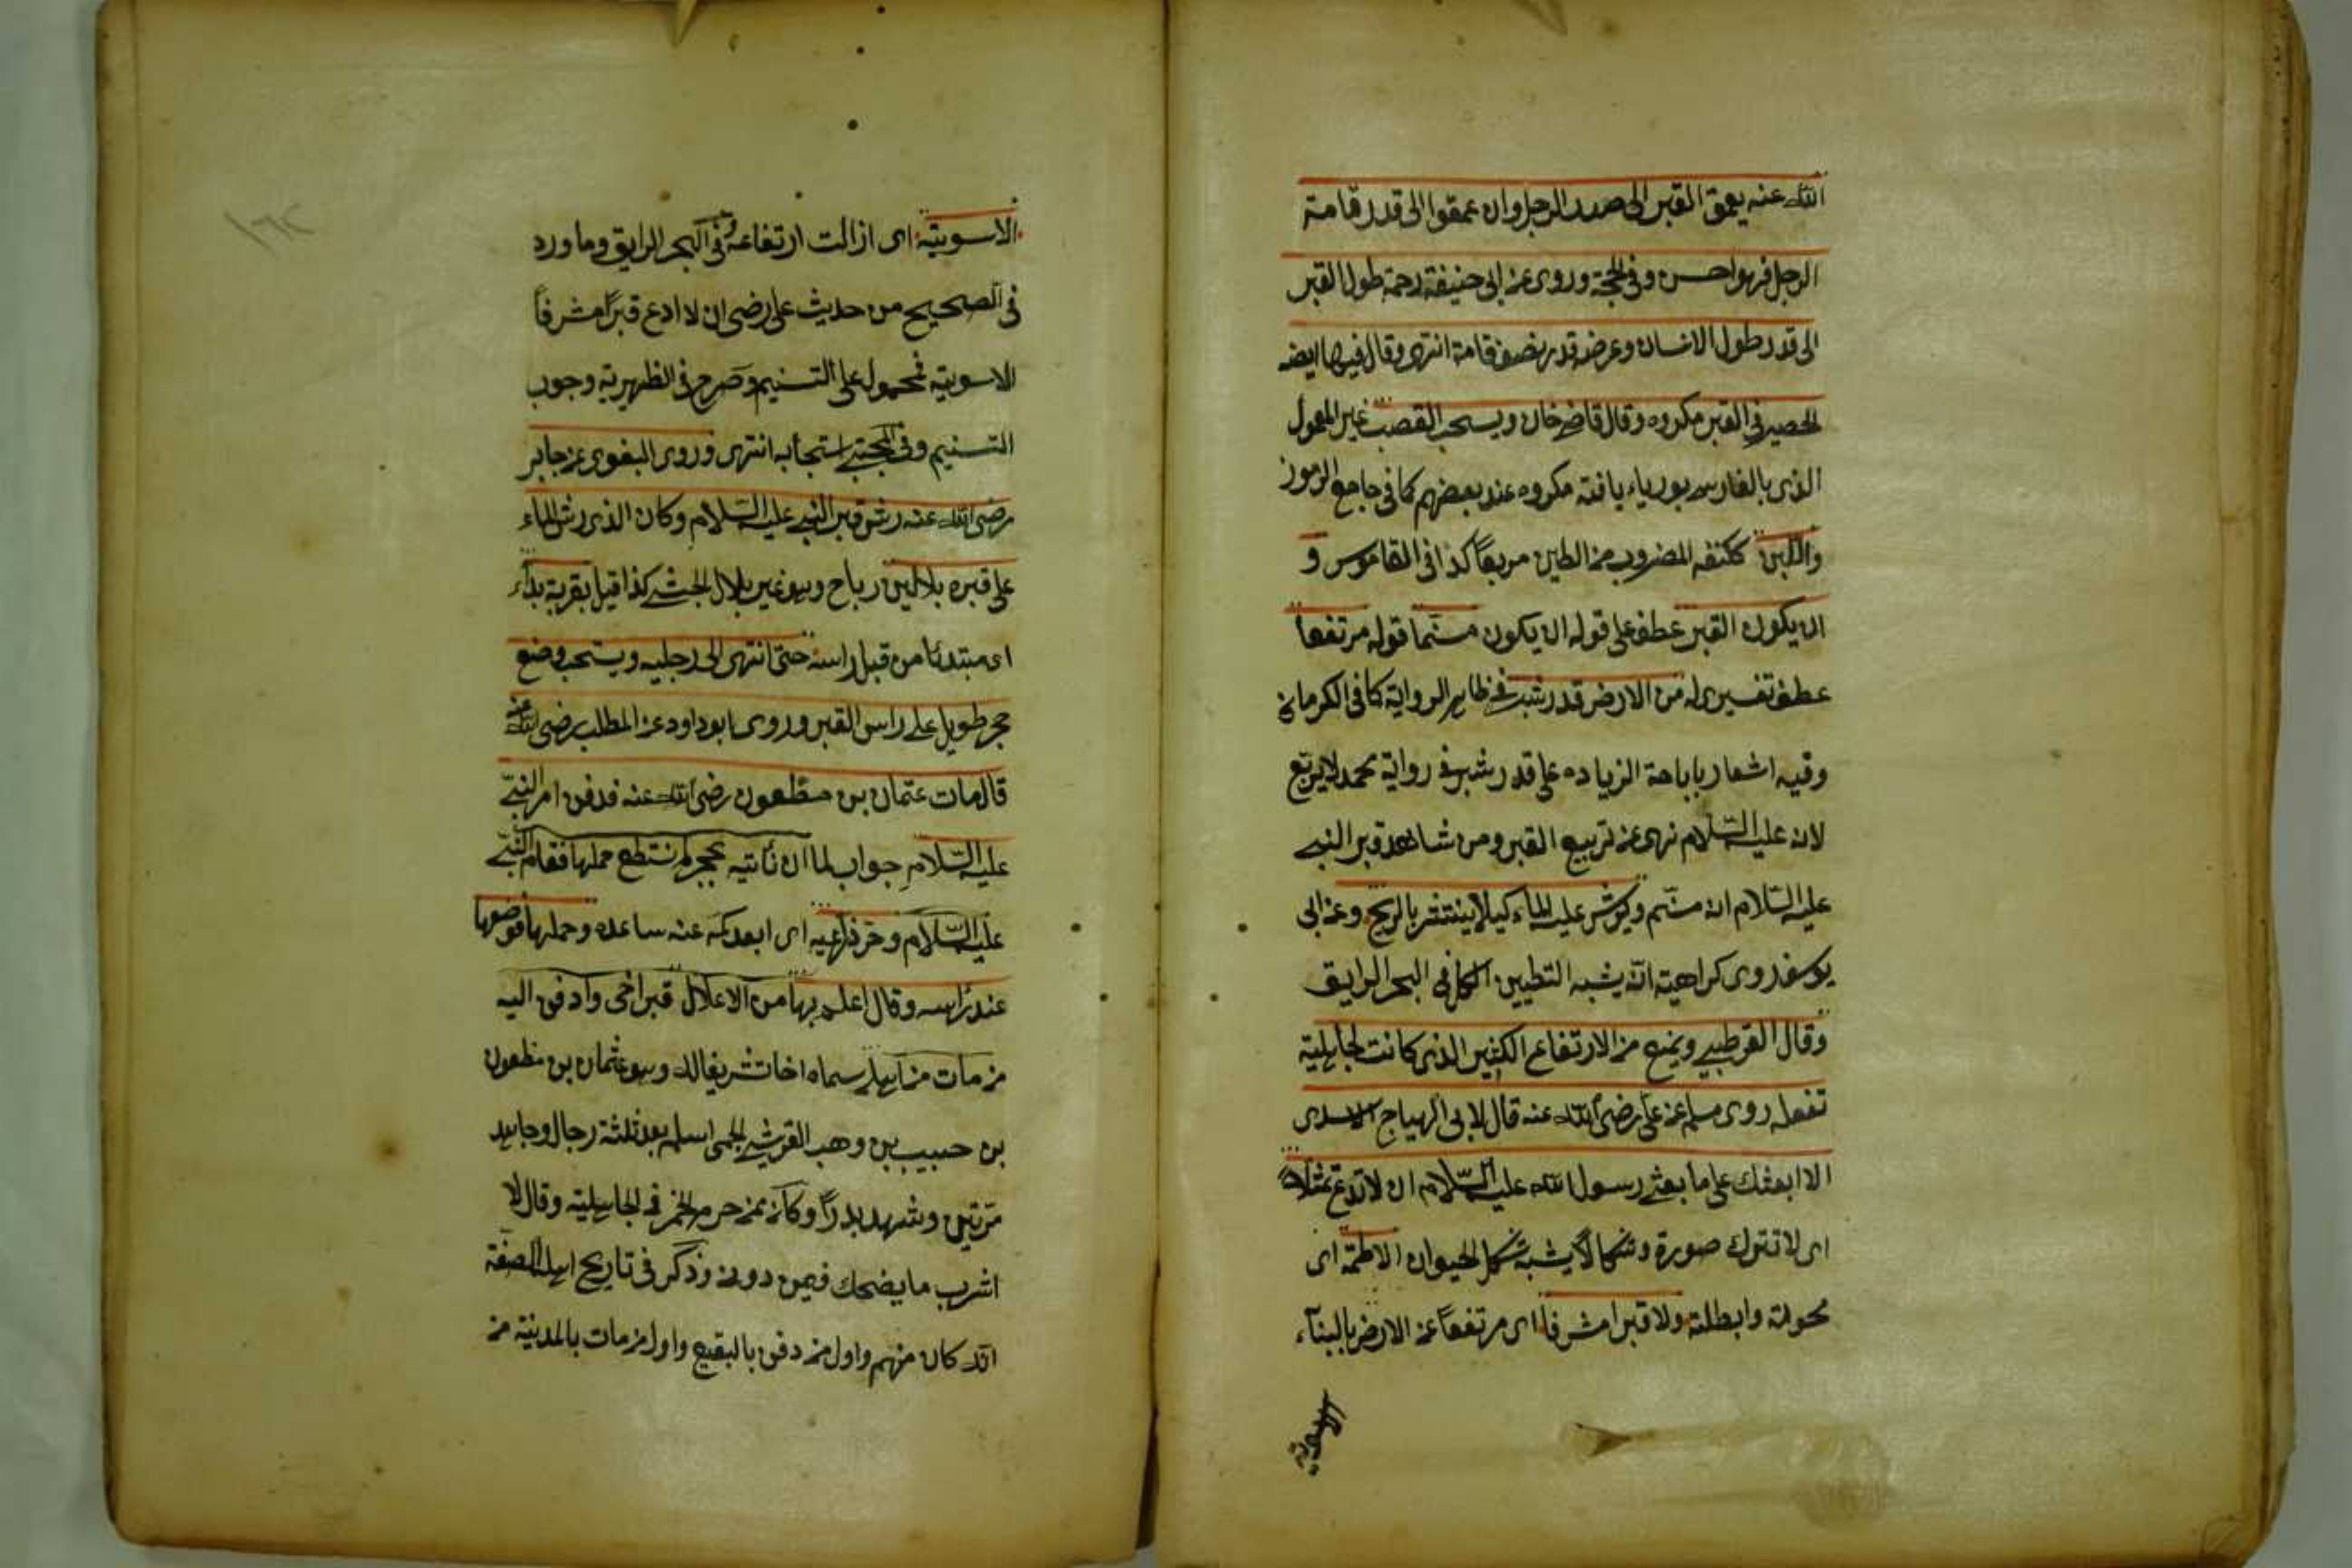 الله عنه يعمق القبر الى صدر الرجل وان عمقوا الى قدر قامة
الرجل فهو احسن وفى الحجة وروى عن ابى حنيفة رحمة طول القبر
الى قدر طول الانسان وعرضه قدر نصف قامة انتهى وقال فيها ايضه
الحصير فى القبر مكروه وقال قاضى خان ويستحب القصب غير المعمول
الذى بالفارسى بورياء بافته مكروه عند بعضهم كما فى جامع الرموز
واللبن ككتف المضروب من الطين مربعاً كذا فى القاموس و
ان يكون القبر عطف على قوله ان يكون مسنما قوله مرتفعا
عطف تفسيرى له من الارض قدر شبر فى ظاهر الرواية كما فى الكرمانى
وفيه اشعار باباحة الزيادة على قدر شبر فى رواية محمد لا يربّع
لانه عليه السّلام نهى عن تربيع القبر ومن شاهد قبر النبى
عليه السّلام انه مسنّم ويرش عليه الماء كيلا ينتشر بالريح وعن ابى
يوسف روى كراهية انّه يشبه التطيين الكل فى البحر الرايق
وقال القرطبى ويمنع من الارتفاع الكثير الذى كانت الجاهلية
تفعله روى مسلم عن على رضى الله عنه قال لابى الهياج الاسدى
الا ابعثك على ما بعثنى رسول الله عليه السّلام ان لا تدع تمثالاً
اى لا تترك صورة وشكالاً يشبه شكل الحيوان الا طمته اى
محوته وابطلته ولا قبرا مشرفا اى مرتفعاً عن الارض بالبنآء
الاسويته
الاسويته اى ازالت ارتفاعه وفى البحر الرايق وما ورد
فى الصحيح من حديث على رضى ان لا ادع قبراً مشرفاً
الاسويته فمحمول على التسنيم وصرح فى الظهيرية وجوب
التسنيم وفى المجتبى استحبابه انتهى وروى البغوى عن جابر
رضى الله عنه رش قبر النبى عليه السّلام وكان الذى رش الماء
على قبره بلال بن رباح وهو غير بلال الحبشى كذا قيل بقربة بدآء
اى مبتدئا من قبل راسه حتى انتهى الى رجليه ويستحب وضع
حجر طويل على راس القبر وروى ابو داود عن المطلب رضى الله عنه
قال مات عثمان بن مظعون رضى الله عنه فدفن امر النبىّ
عليه السّلام جواب لما ان نأتيه بحجر لم نستطع حملها فقام النبىّ
عليه السّلام وحر ذراعيه اى ابعد كمّه عنه ساعده وحملها فوضعها
عند راسه وقال اعلم بها من الاعلال قبر اخى وادفن اليه
من مات من اهلى سماه اخا تشريفا له وهو عثمان بن مظعون
بن حبيب بن وهب القرشى الجمحى اسلم بعد ثلثة رجال وجاهد
مرّتين وشهد بدراً وكان ممن حرم الخمر فى الجاهلية وقال لا
اشرب ما يضحك فيمن دونى وذكر فى تاريخ اهل الصفة
انّه كان منهم واول من دفن بالبقيع واول من مات بالمدينة من
١٦٢